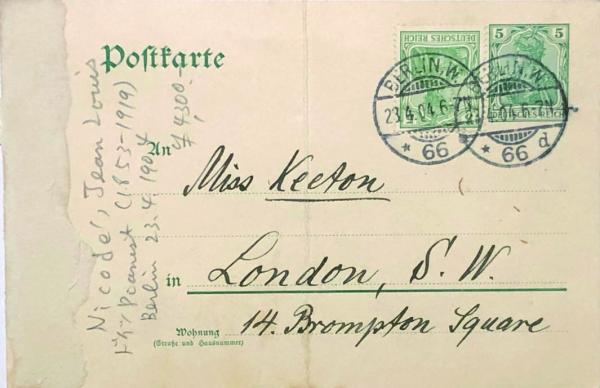 Postkarte
5 5
DEUTSCHES REICH
DEUTSCHES REICH
BERLIN.W.
23.4.04.6-7N.
* 66
BERLIN.W.
4.04.6-7N.
* 66 d
An
Miss Keeton
in London, S. W.
Wohnung
(Straße und Hausnummer)
14. Brompton Square
Nicodé, Jean Louis
Pianist (1853-1919)
Berlin 23.4.1904
4300,-